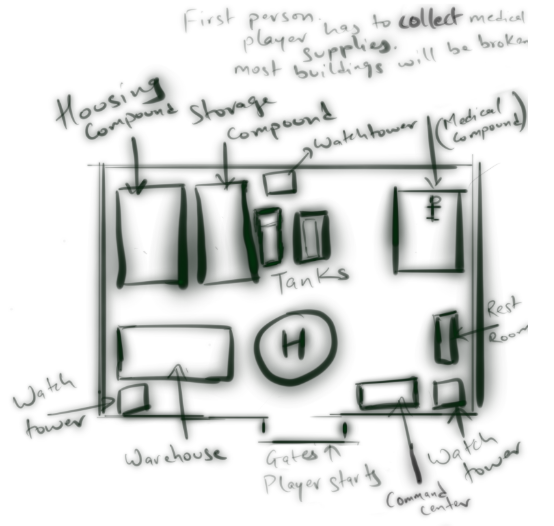 First person.
player has to collect medical
supplies.
most buildings will be broken
Housing
Compound
Storage
Compound
Watchtower
(Medical
Compound)
Tanks
H
Rest
Room
Watch
tower
Warehouse
Gates
Player starts
Command
center
Watch
tower